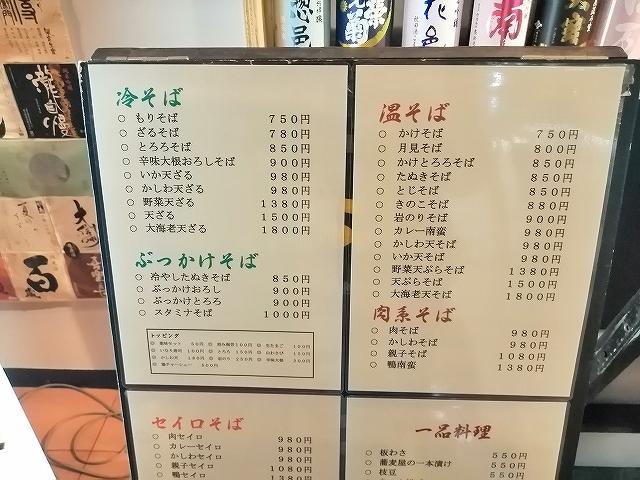 冷そば
○ もりそば 750円
○ ざるそば 780円
○ とろろそば 850円
○ 辛味大根おろしそば 900円
○ いか天ざる 980円
○ かしわ天ざる 980円
○ 野菜天ざる 1380円
○ 天ざる 1500円
○ 大海老天ざる 1800円
ぶっかけそば
○ 冷やしたぬきそば 850円
○ ぶっかけおろし 900円
○ ぶっかけとろろ 900円
○ スタミナそば 1000円
トッピング
温そば
○ かけそば 750円
○ 月見そば 800円
○ かけとろろそば 850円
○ たぬきそば 850円
○ とじそば 850円
○ きのこそば 880円
○ 岩のりそば 900円
○ カレー南蛮 980円
○ かしわ天そば 980円
○ いか天そば 980円
○ 野菜天ぷらそば 1380円
○ 天ぷらそば 1500円
○ 大海老天そば 1800円
肉系そば
○ 肉そば 980円
○ かしわそば 980円
○ 親子そば 1080円
○ 鴨南蛮 1380円
セイロそば
○ 肉セイロ 980円
○ カレーセイロ 980円
○ かしわセイロ 980円
○ 親子セイロ 1080円
○ 鴨セイロ 1380円
一品料理
○ 板わさ 550円
○ 蕎麦屋の一本漬け 550円
○ 枝豆 550円